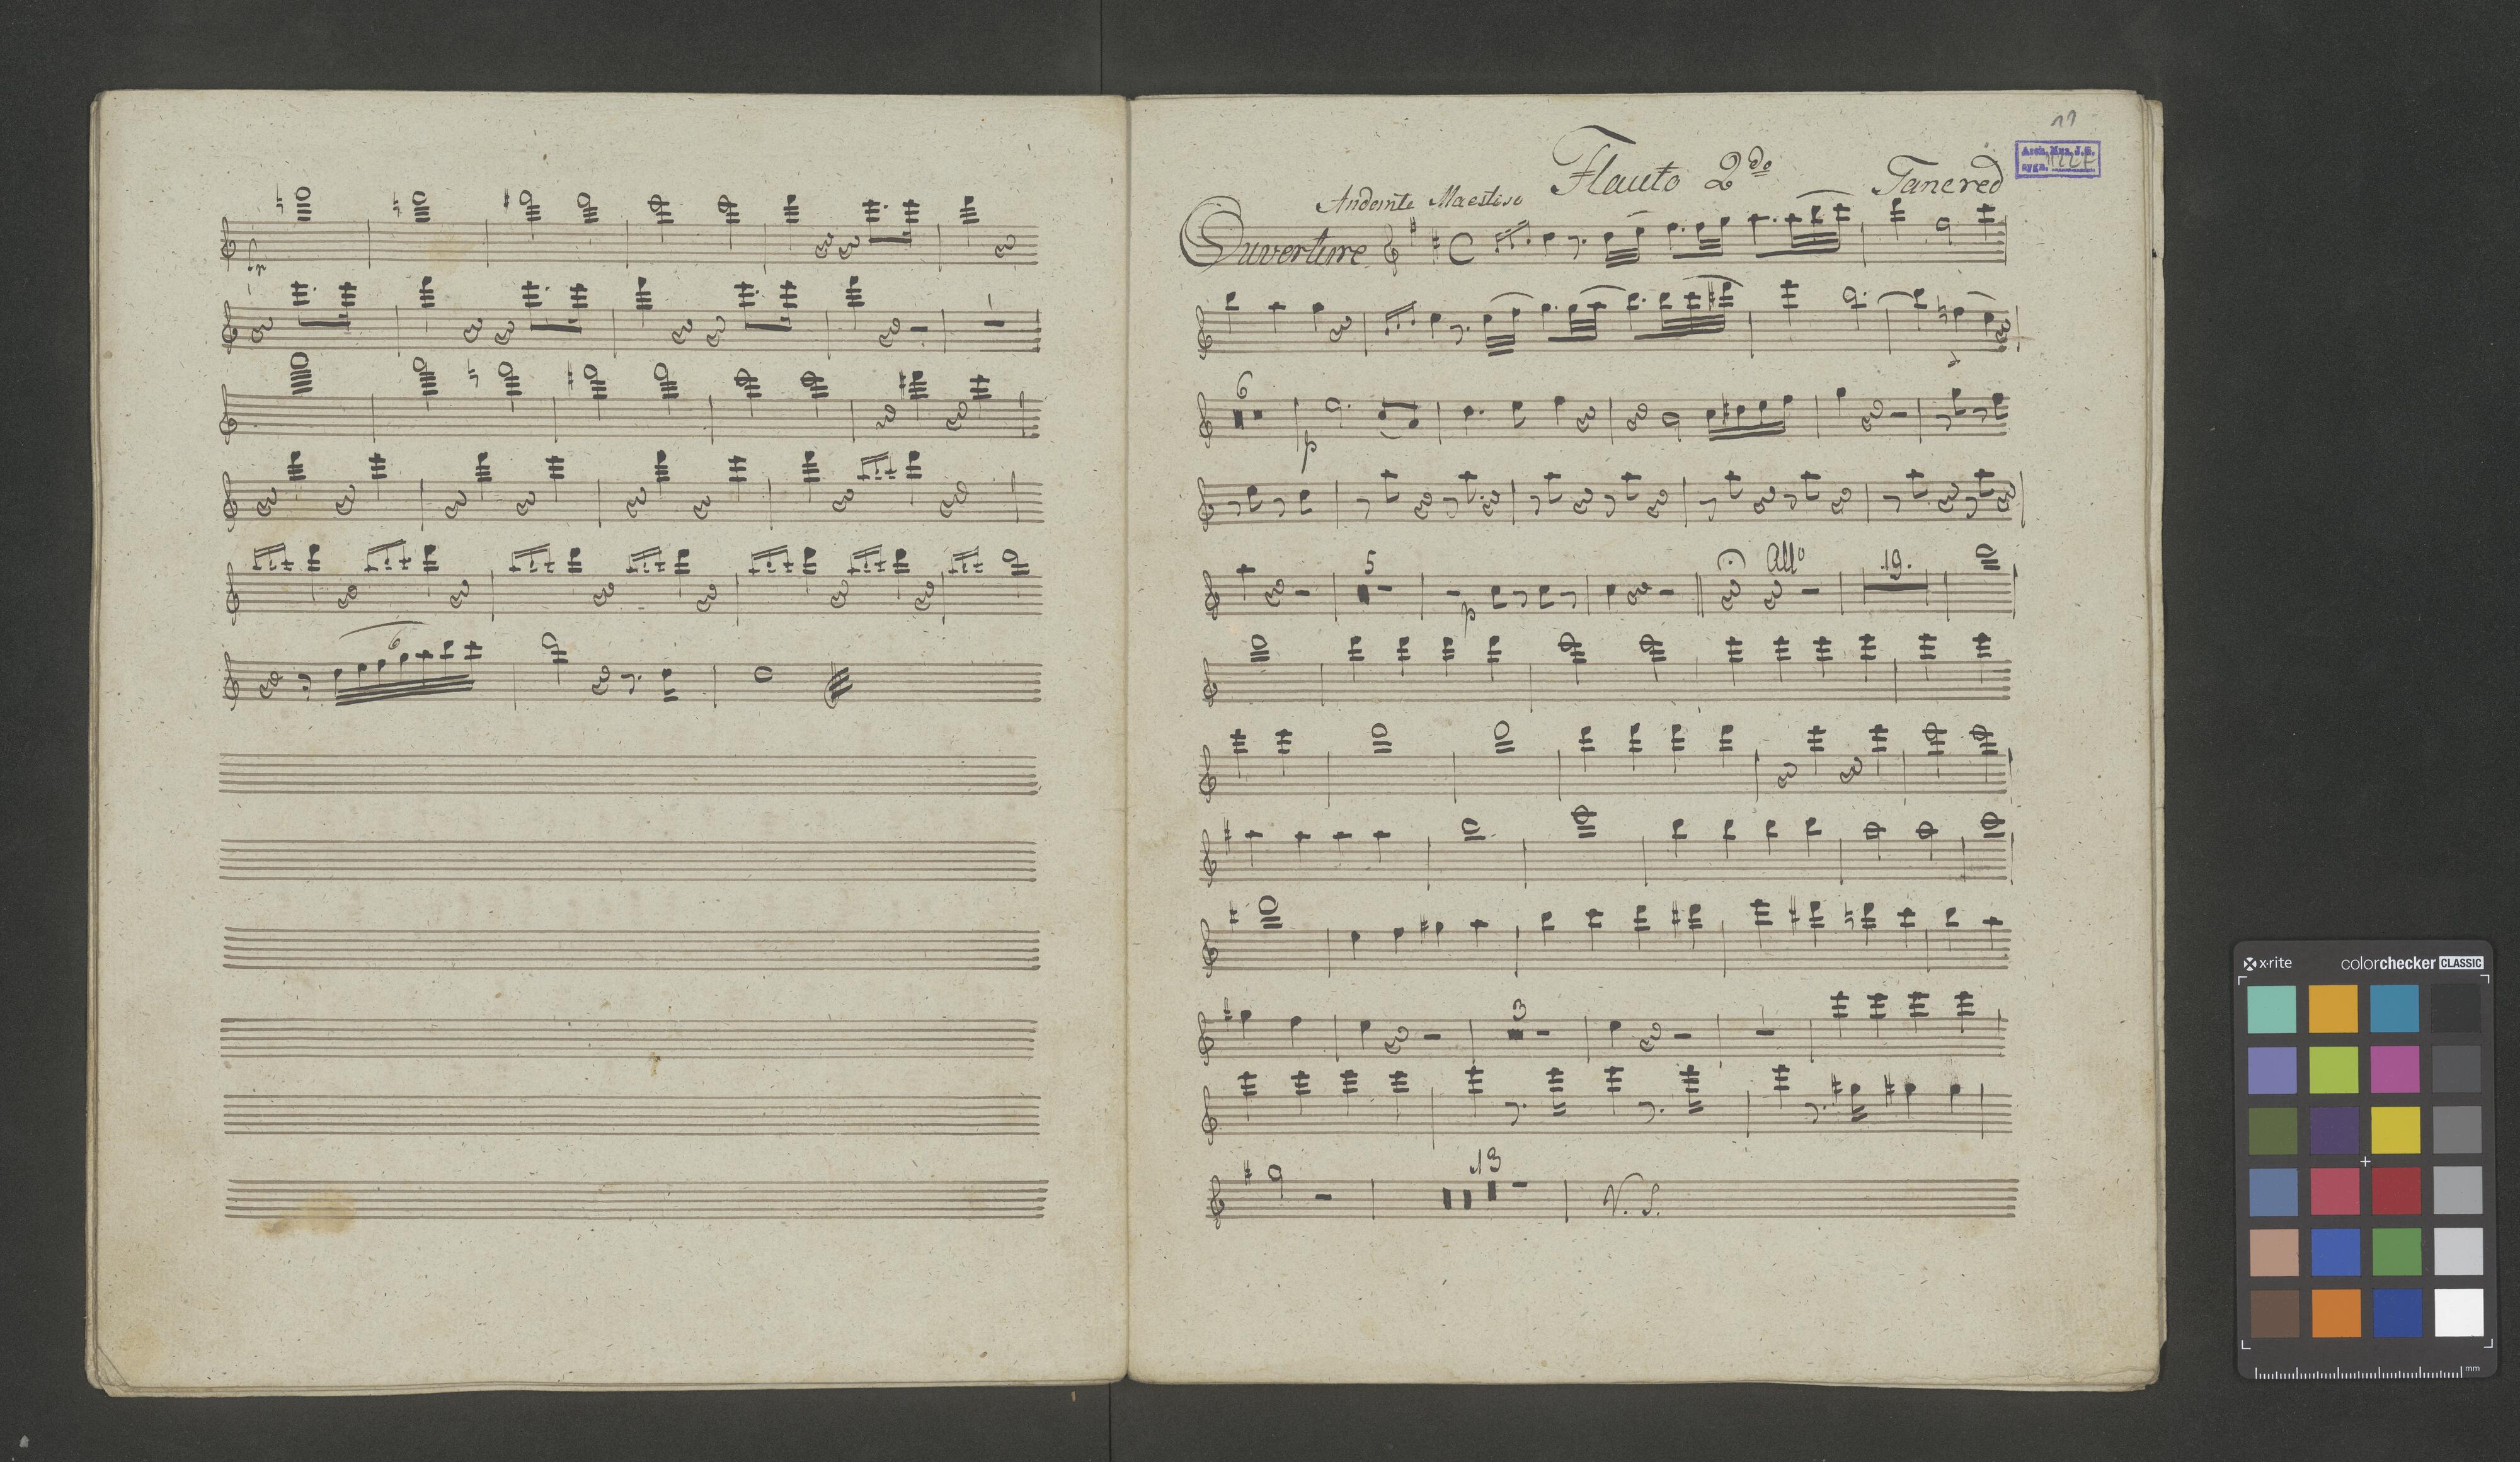 6
11
Flauto 2do Tancred
Arch. Muz. J. G.
sygn.
Andante Maestoso
Ouverture
6
p
5
p
Allo
19.
3
13
V. S.
x-rite
colorchecker CLASSIC
mm